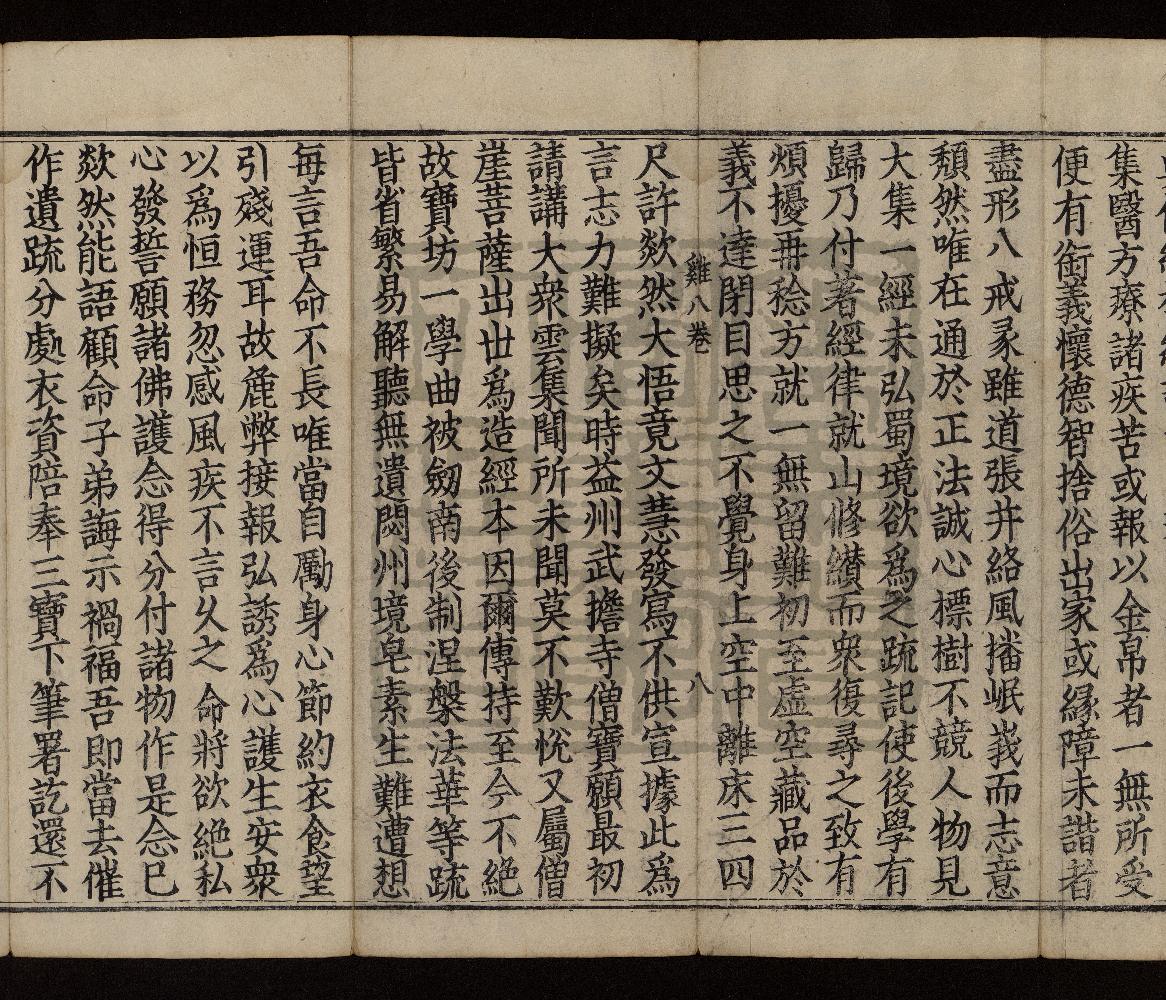 集醫方療諸疾苦或報以金帛者一無所受
便有銜義懷德智捨俗出家或緣障未諧者
盡形八戒豕雖道張井絡風播岷峩而志意
頹然唯在通於正法誠心標樹不競人物見
大集一經未弘蜀境欲爲之疏記使後學有
歸乃付著經律就山修纘而衆復尋之致有
煩擾再稔方就一無留難初至虛空藏品於
義不達閉目思之不覺身上空中離床三四
雞八卷 八
尺許欻然大悟竟文慧發寫不供宣據此爲
言志力難擬矣時益州武擔寺僧寶願最初
請講大衆雲集聞所未聞莫不歎恱又屬僧
崖菩薩出丗爲造經本因爾傳持至今不絶
故寶坊一學曲被劒南後制涅槃法華等疏
皆省繁易解聽無遺悶州境皂素生難遭想
每言吾命不長唯當自勵身心節約衣食望
引殘運耳故麁弊接報弘誘爲心護生安衆
以爲恒務忽感風疾不言久之命將欲絶私
心發誓願諸佛護念得分付諸物作是念已
欻然能語顧命子弟誨示禍福吾即當去催
作遺疏分處衣資陪奉三寶下筆署訖還不